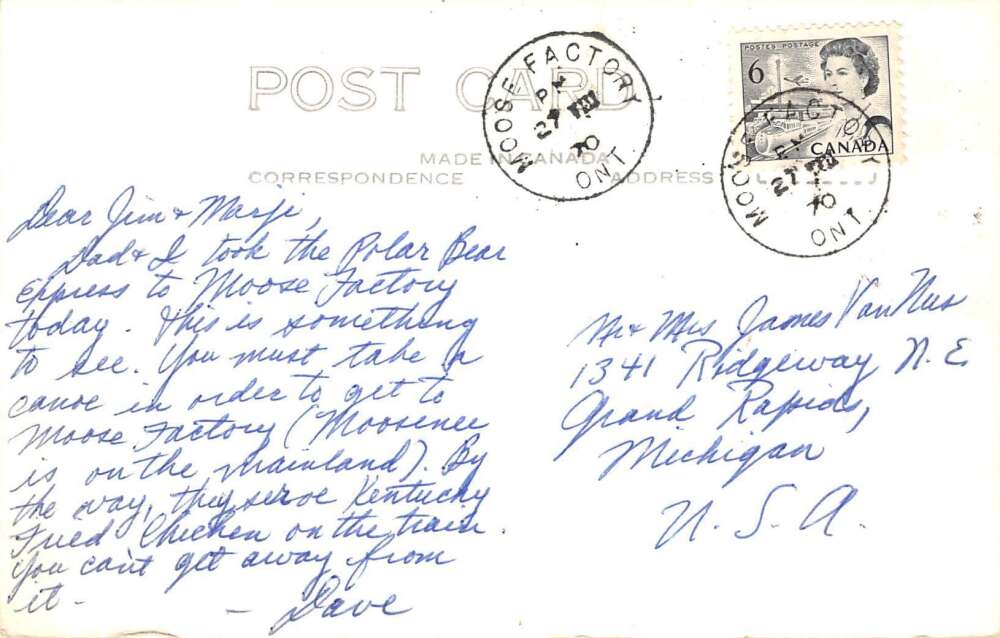 POST CARD
MADE IN CANADA
CORRESPONDENCE
ADDRESS
MOOSE FACTORY
PM
27 VIII
70
ONT.
POSTES POSTAGE
6
CANADA
MOOSE FACTORY
PM
27 VIII
70
ONT
Dear Jim & Marji,
Dad & I took the Polar Bear
Express to Moose Factory
today. This is something
to see. You must take a
canoe in order to get to
Moose Factory (Moosenee
is on the mainland). By
the way, they serve Kentucky
Fried Chicken on the train.
You can't get away from
it -
- Dave
Mr & Mrs James Van Nus
1341 Ridgeway N.E.
Grand Rapids,
Michigan
U.S.A.